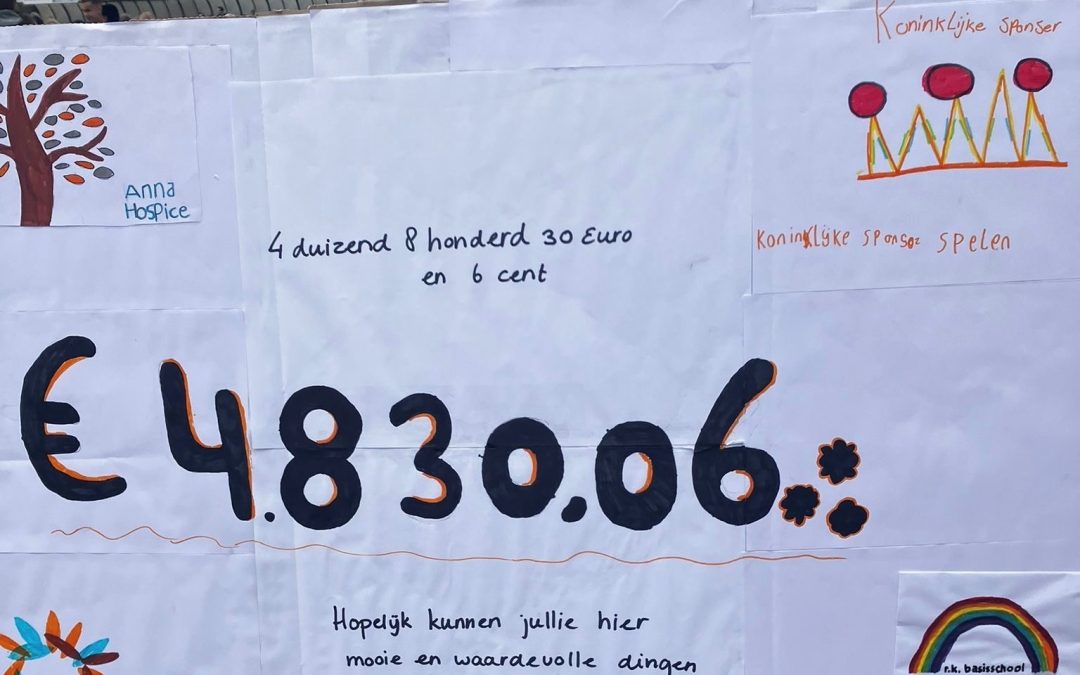 Koninklijke sponser
Anna
Hospice
4 duizend 8 honderd 30 Euro
en 6 cent
Koninklijke sponsor spelen
€ 4.830,06
Hopelijk kunnen jullie hier
mooie en waardevolle dingen
r.k. basisschool